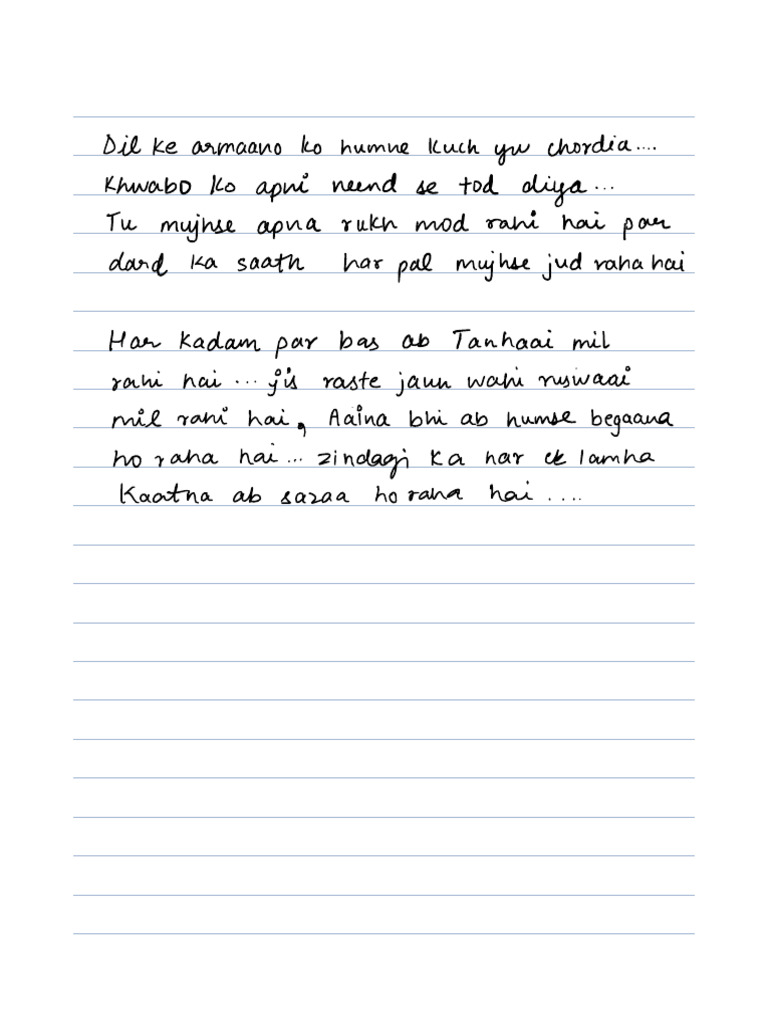 Dil ke armaano ko humne kuch yu chordia....
Khwabo ko apni neend se tod diya...
Tu mujhse apna rukh mod rahi hai par
dard ka saath har pal mujhse jud raha hai
Har kadam par bas ab Tanhaai mil
rahi hai... jis raste jaun wahi ruswaai
mil rahi hai, Aaina bhi ab humse begaana
ho raha hai... zindagi ka har ek lamha
Kaatna ab sazaa ho raha hai....